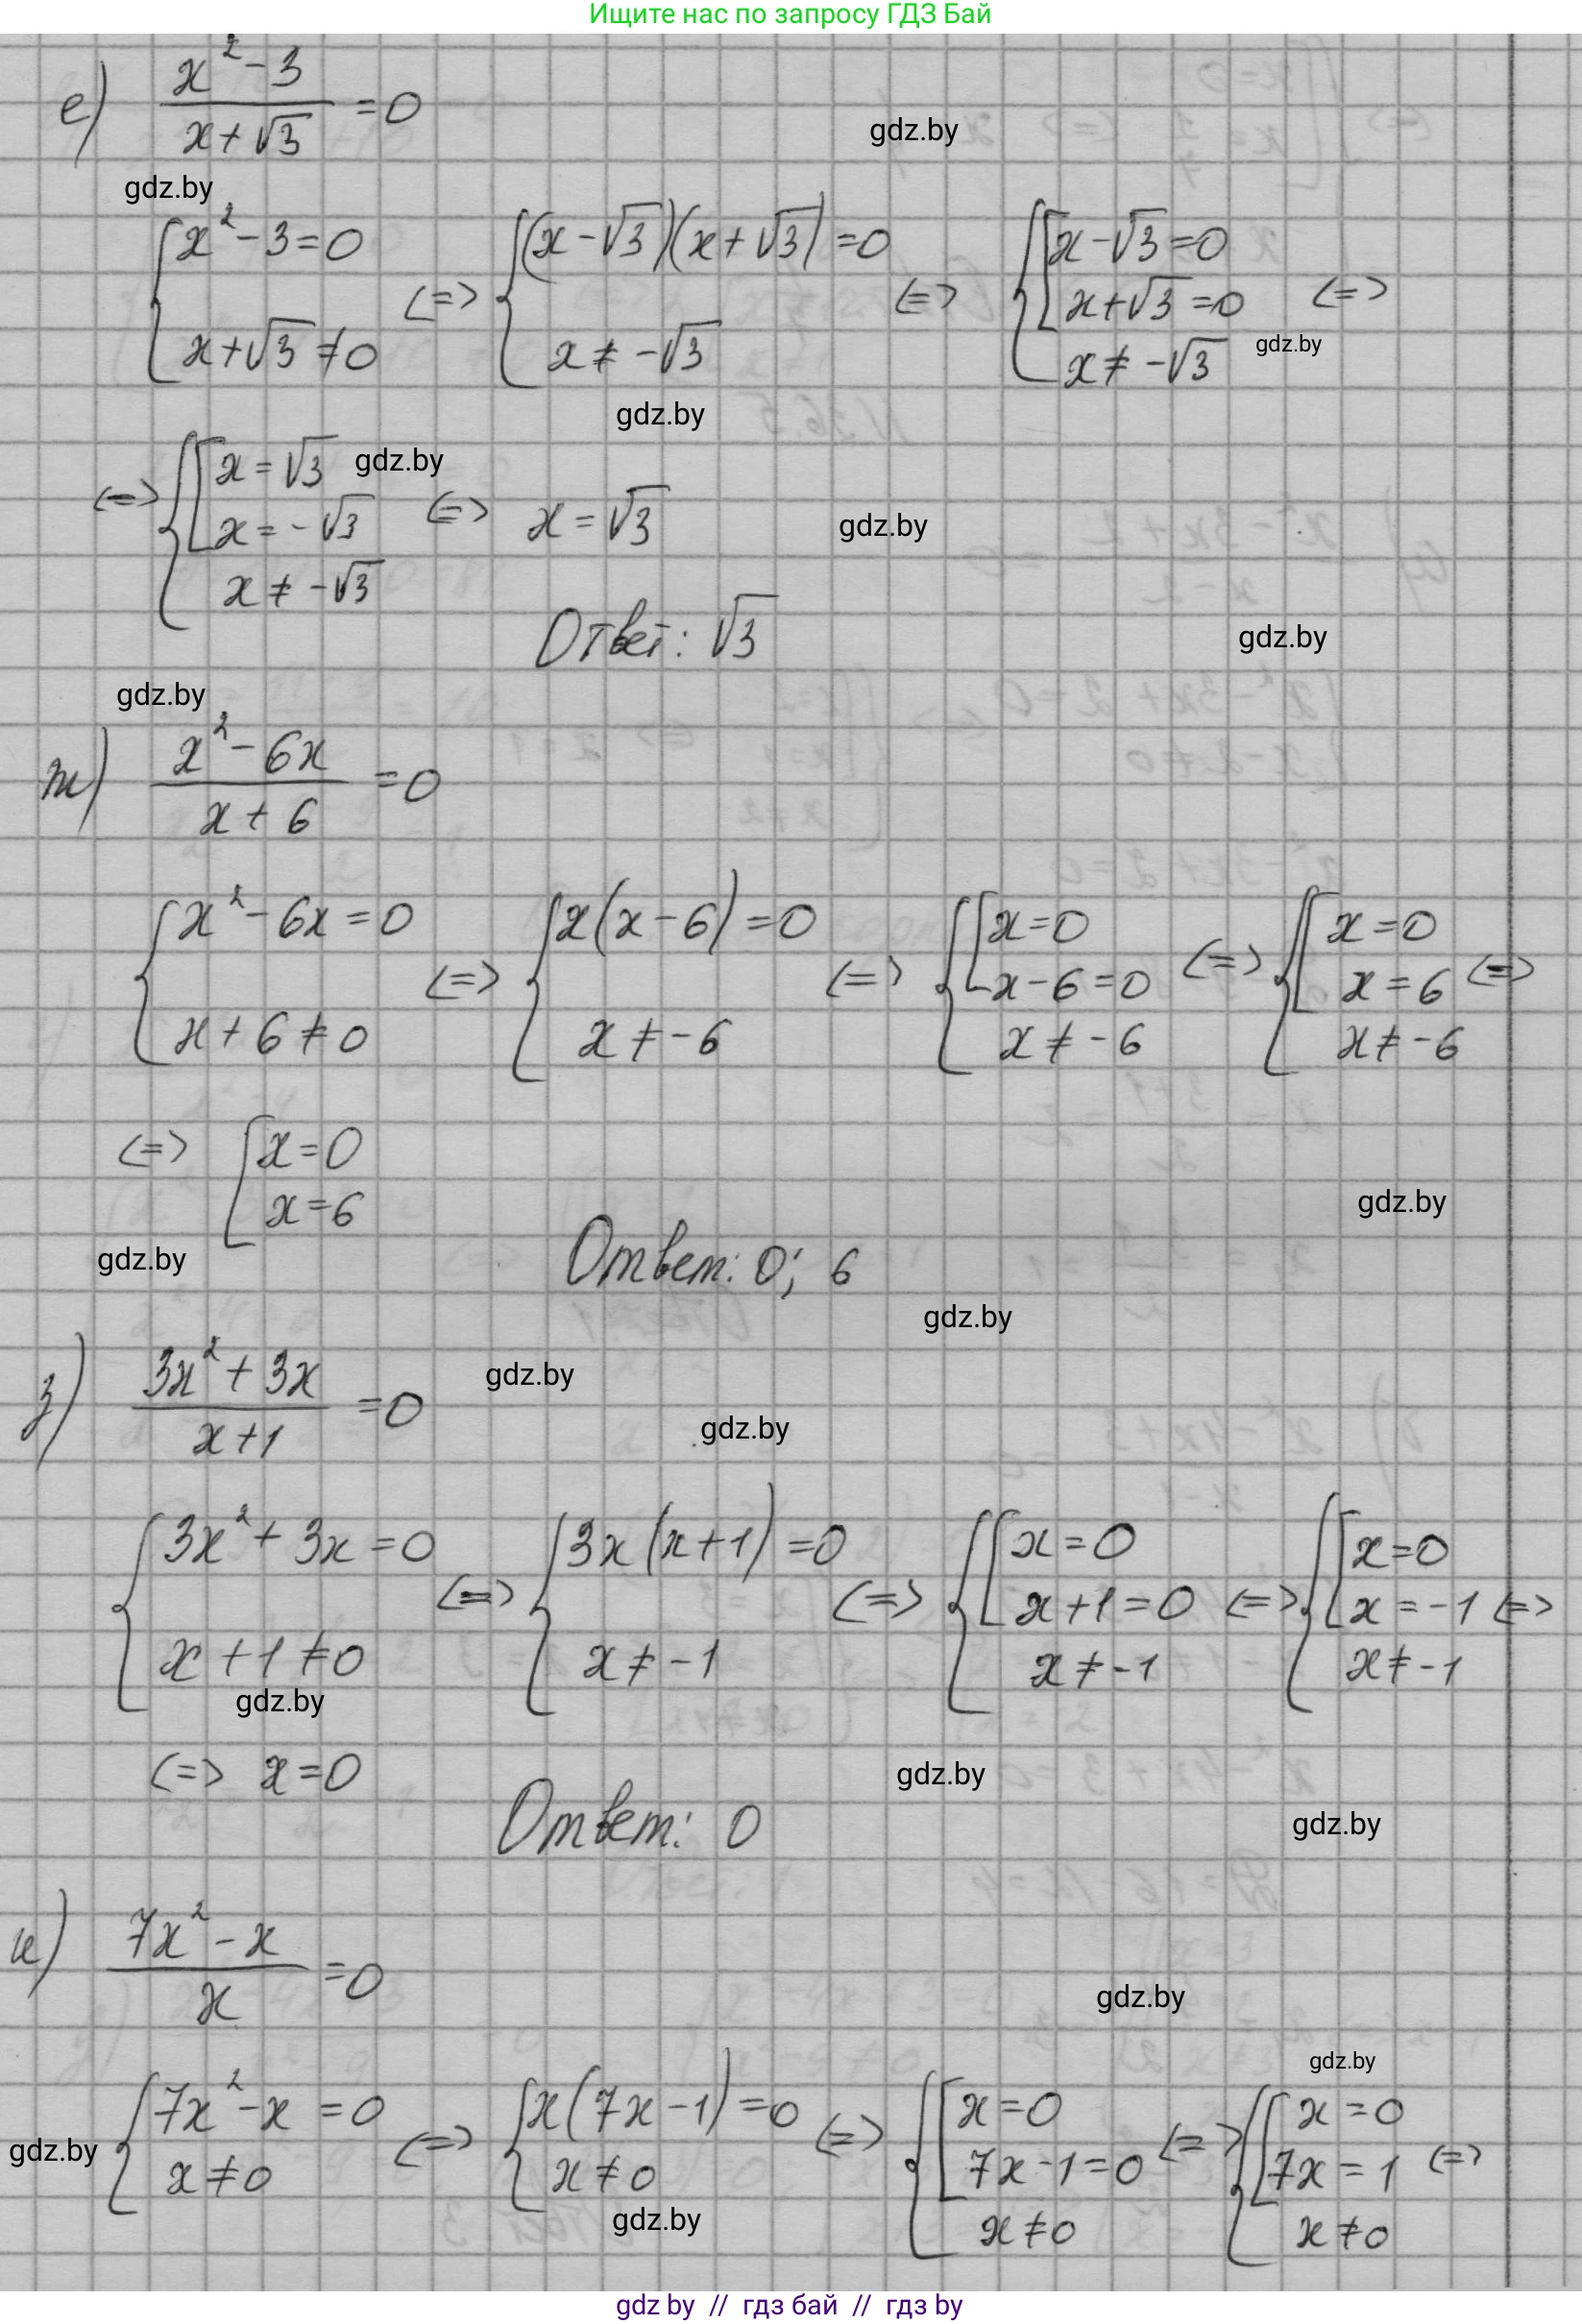 Ищите нас по запросу ГДЗ Бай
е) (x² - 3)/(x + √3) = 0
gdz.by
gdz.by
{ x² - 3 = 0; x + √3 ≠ 0 <=> { (x - √3)(x + √3) = 0; x ≠ -√3 <=> { [ x - √3 = 0; x + √3 = 0; x ≠ -√3 <=>
gdz.by
gdz.by
<=> { [ x = √3; x = -√3; x ≠ -√3 <=> x = √3
gdz.by
gdz.by
Ответ: √3
gdz.by
gdz.by
ж) (x² - 6x)/(x + 6) = 0
{ x² - 6x = 0; x + 6 ≠ 0 <=> { x(x - 6) = 0; x ≠ -6 <=> { [ x = 0; x - 6 = 0; x ≠ -6 <=> { [ x = 0; x = 6; x ≠ -6 <=>
<=> [ x = 0; x = 6
gdz.by
gdz.by
Ответ: 0; 6
gdz.by
з) (3x² + 3x)/(x + 1) = 0
gdz.by
gdz.by
{ 3x² + 3x = 0; x + 1 ≠ 0 <=> { 3x(x + 1) = 0; x ≠ -1 <=> { [ x = 0; x + 1 = 0; x ≠ -1 <=> { [ x = 0; x = -1; x ≠ -1 <=>
gdz.by
<=> x = 0
gdz.by
Ответ: 0
gdz.by
и) (7x² - x)/x = 0
gdz.by
gdz.by
{ 7x² - x = 0; x ≠ 0 <=> { x(7x - 1) = 0; x ≠ 0 <=> { [ x = 0; 7x - 1 = 0; x ≠ 0 <=> { [ x = 0; 7x = 1; x ≠ 0 <=>
gdz.by
gdz.by
gdz by // гдз бай // гдз by